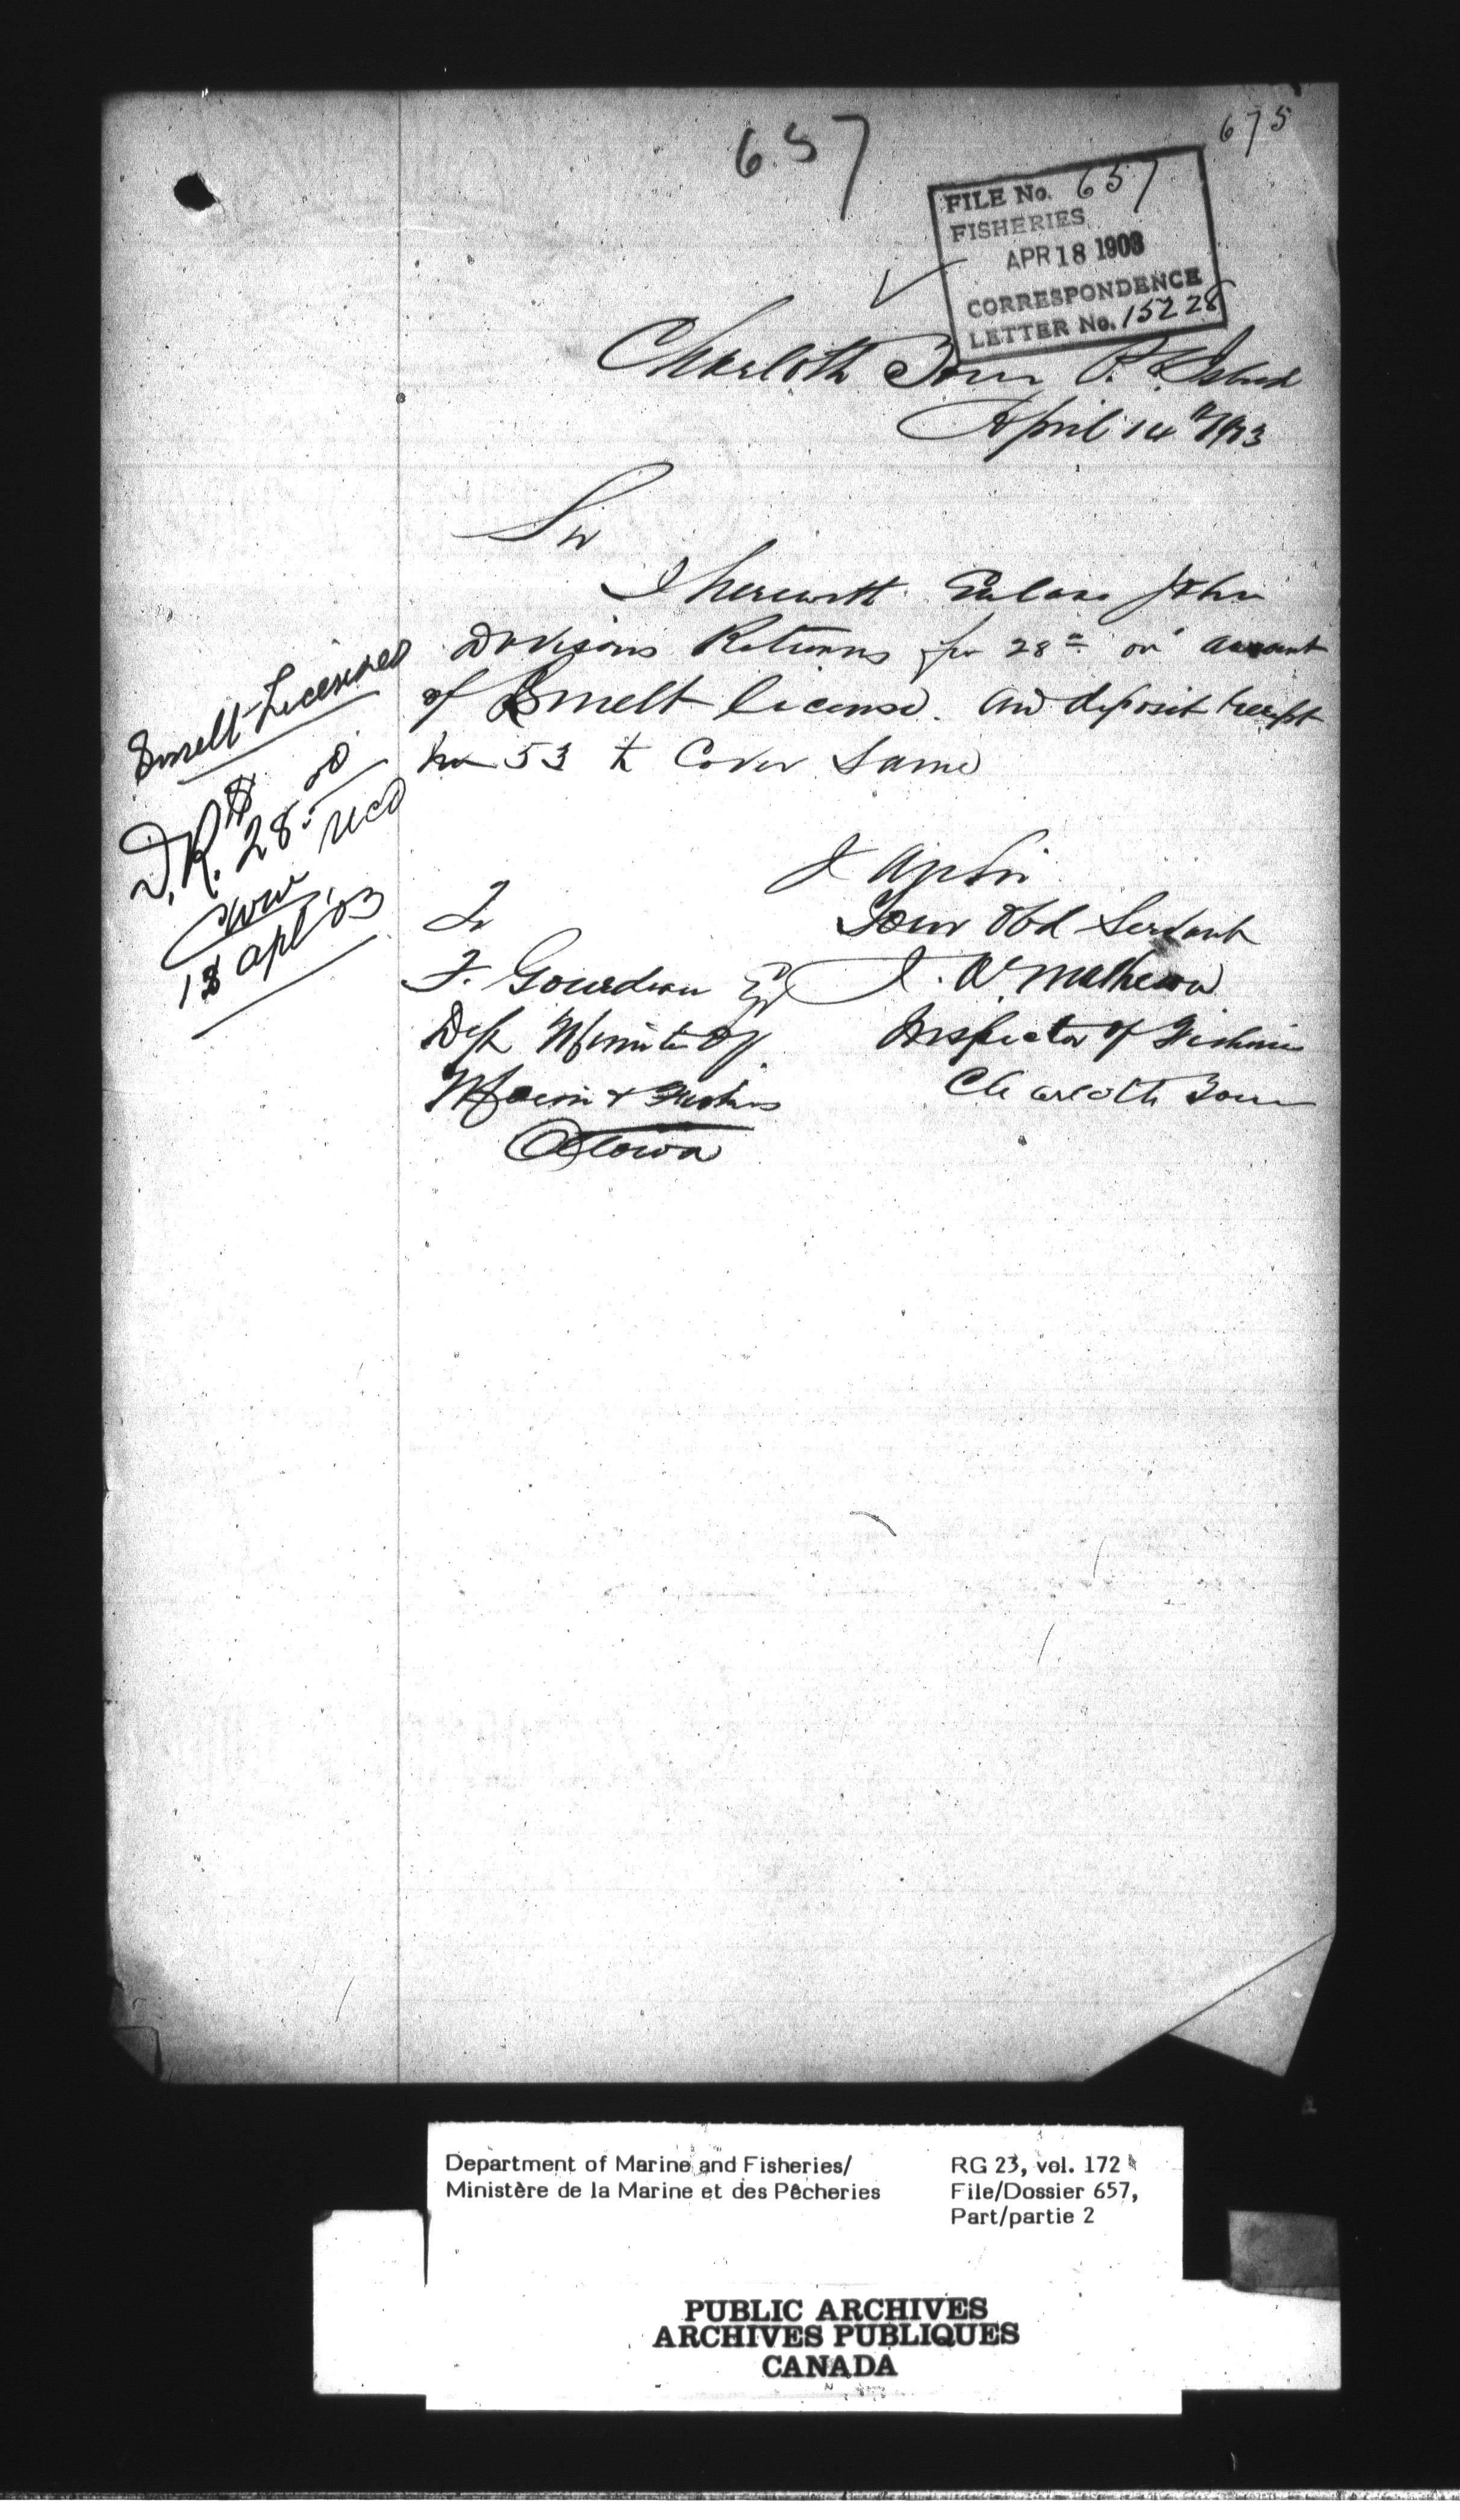 657
675
FILE No. 657
FISHERIES
APR 18 1903
CORRESPONDENCE
LETTER No. 15228
Charlotte Town P. E. Island
April 14th 1903
Sir
I herewith Enclose John
Davisons Returns for 28 00 on account
of Smelt license. and deposit receipt
53 to Cover Same
Smelt Licenses
D.R. $28.00
recd
18 apl '03
I am Sir
Your Obd Servant
J. A. Matheson
Inspector of Fisheries
Charlotte Town
To
F. Gourdeau Esq
Dept Minister of
Marine & Fisheries
Ottawa
Department of Marine and Fisheries/
Ministère de la Marine et des Pêcheries
RG 23, vol. 172
File/Dossier 657,
Part/partie 2
PUBLIC ARCHIVES
ARCHIVES PUBLIQUES
CANADA